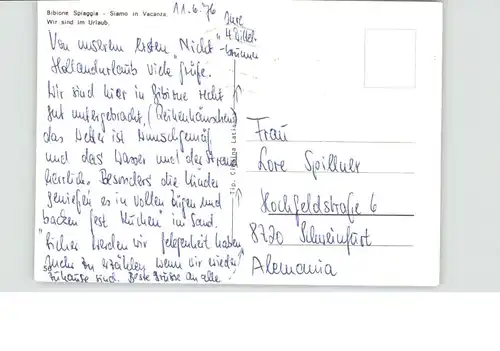 Bibione Spiaggia - Siamo in Vacanza
Wir sind im Urlaub.
11.6.76
Von unserem ersten "Nicht"
Hollandurlaub viele Grüße.
Wir sind hier in Bibione recht
gut untergebracht, (Reihenhäuschen)
das Wetter ist Wunschgemäß
und das Wasser und der Strand
herrlich. Besonders die Kinder
genießen es in vollen Zügen und
backen fest "Kuchen" im Sand.
Sicher werden wir Gelegenheit haben
Euch zu erzählen wenn wir wieder
zuhause sind. Beste Grüsse an alle!
Eure
Tip.
Frau
Lore Spillner
Hochfeldstraße 6
8720 Schweinfurt
Alemania